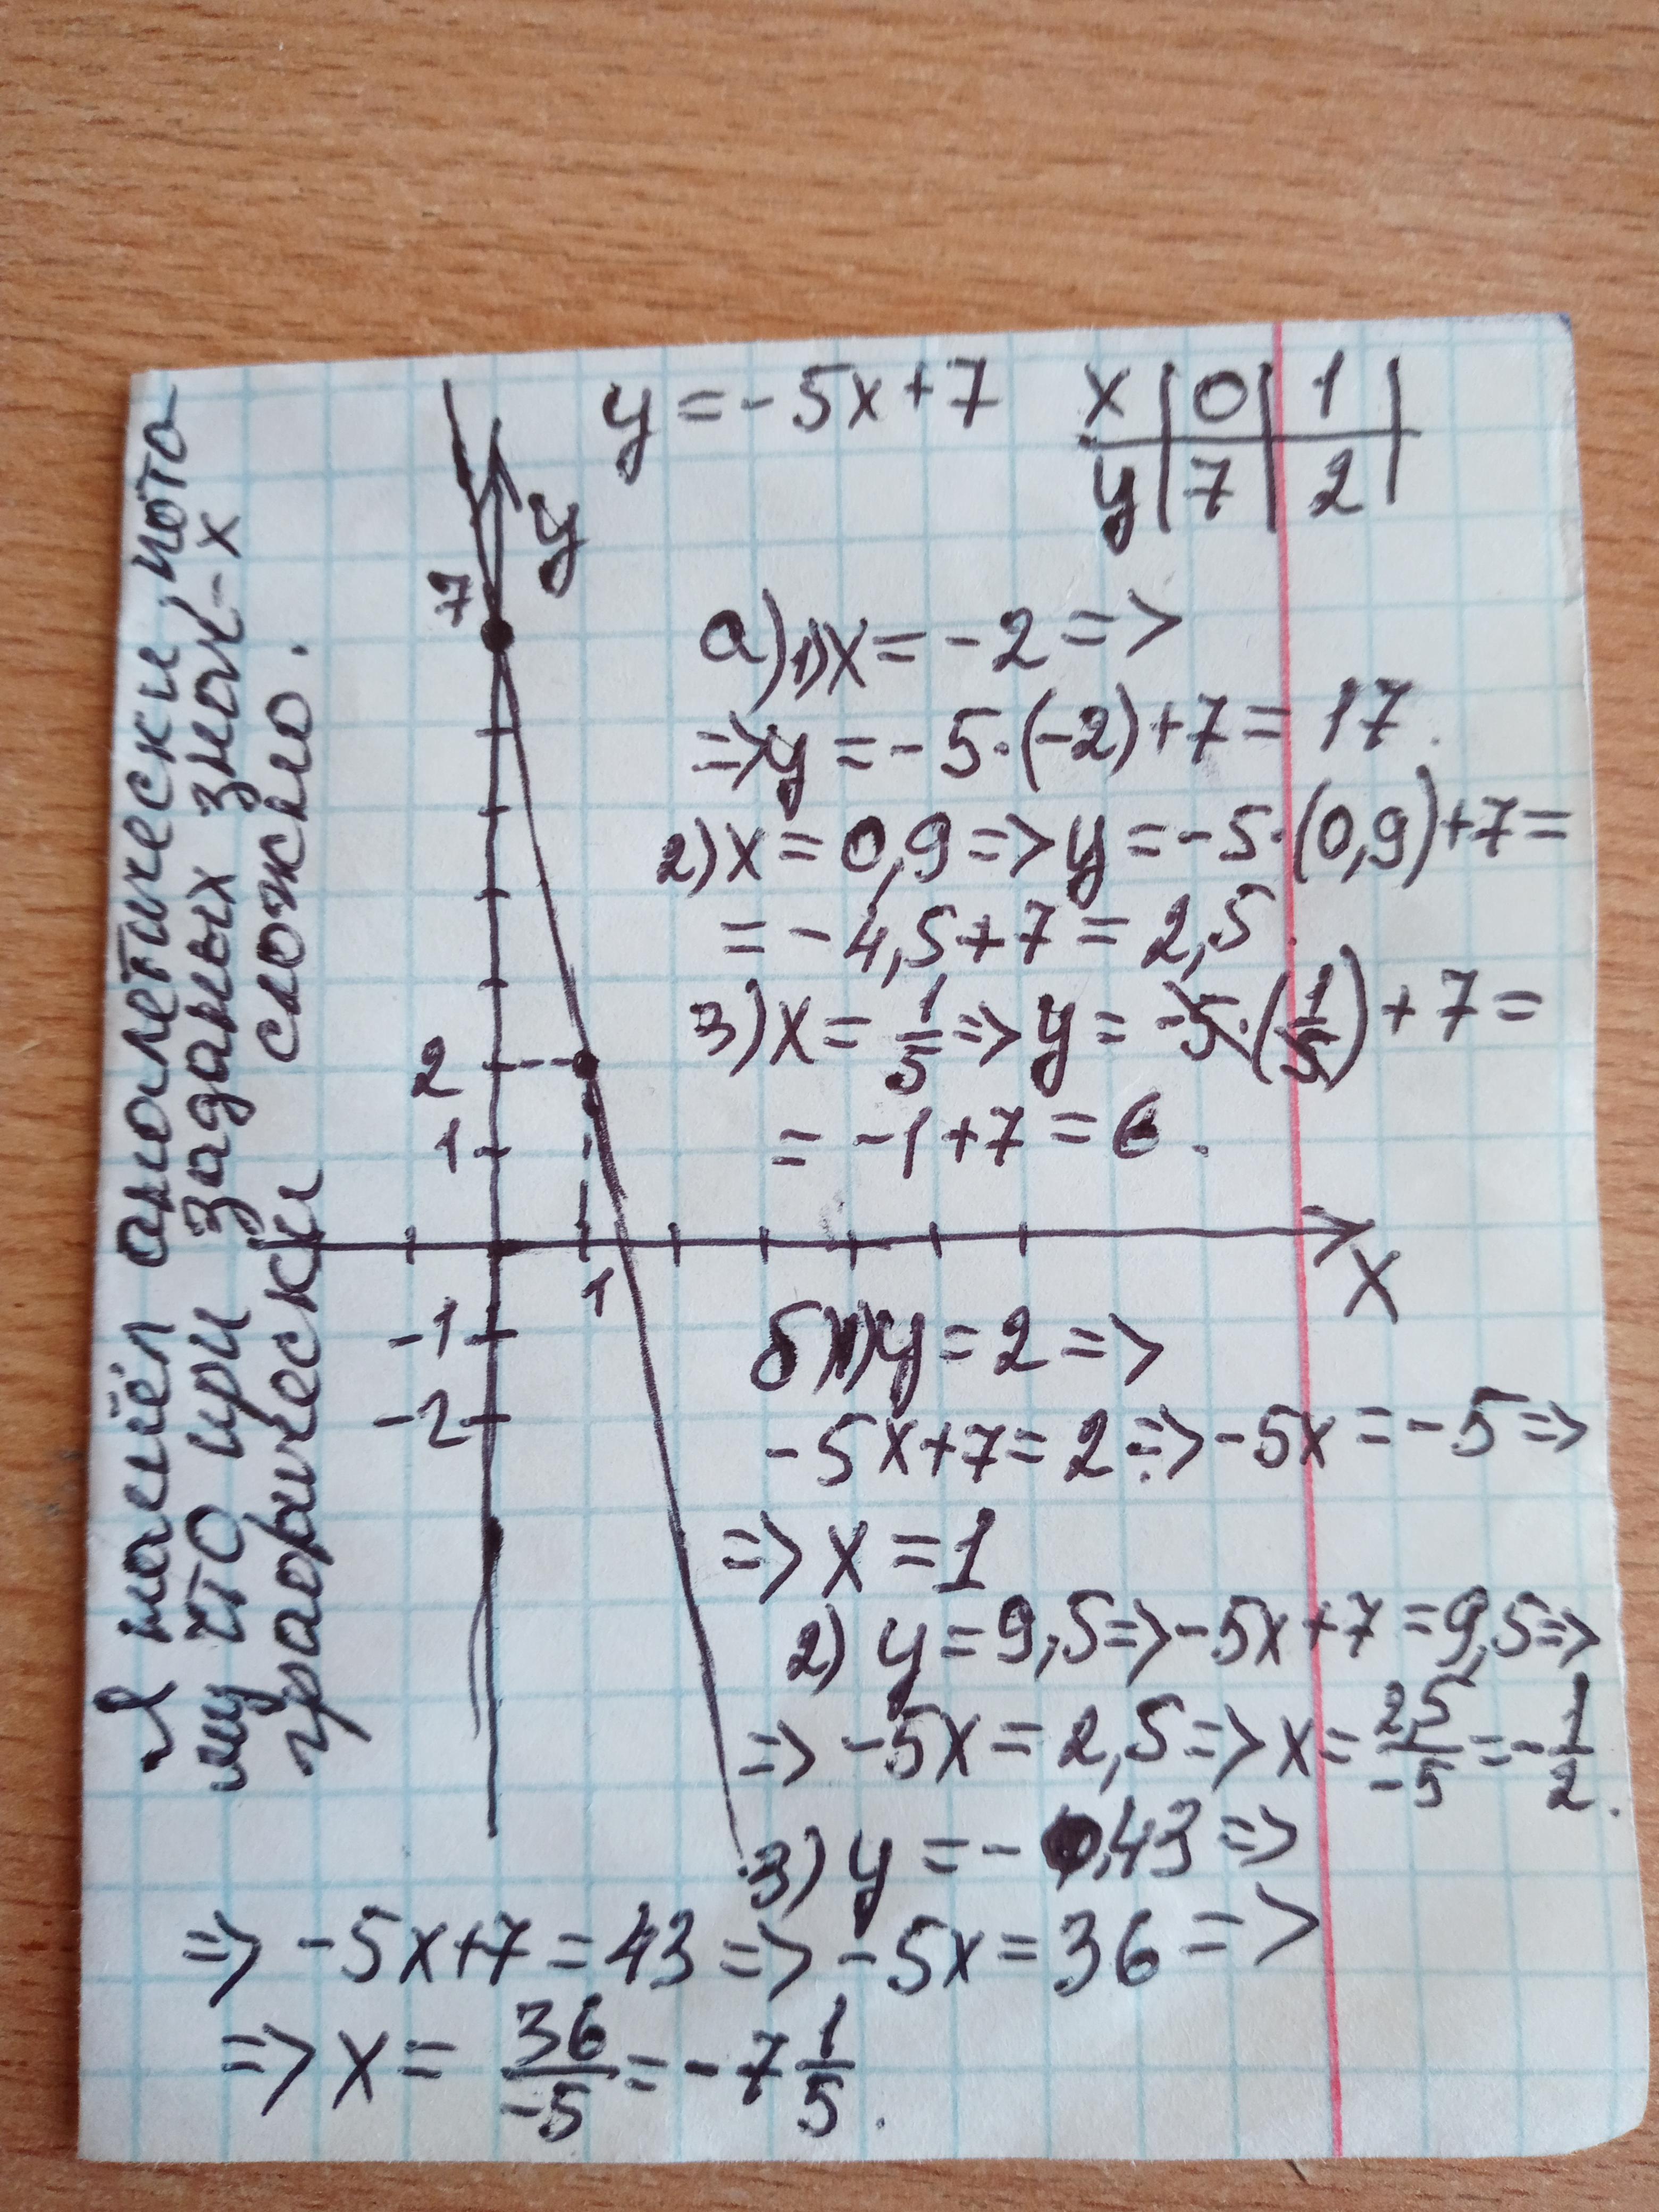 y = -5x+7
x | 0 | 1
y | 7 | 2
y
7
2
1
1
-1
-2
x
а) 1) x = -2 =>
=> y = -5·(-2)+7 = 17.
2) x = 0,9 => y = -5·(0,9)+7 =
= -4,5+7 = 2,5.
3) x = 1/5 => y = -5·(1/5)+7 =
= -1+7 = 6.
б) 1) y = 2 =>
-5x+7 = 2 => -5x = -5 =>
=> x = 1
2) y = 9,5 => -5x+7 = 9,5 =>
=> -5x = 2,5 => x = 2,5/-5 = -1/2.
3) y = - 43 =>
=> -5x+7 = 43 => -5x = 36 =>
=> x = 36/-5 = -7 1/5.
Я нашёл аналетически, пото
му что при заданых знач-х
графически сложно.